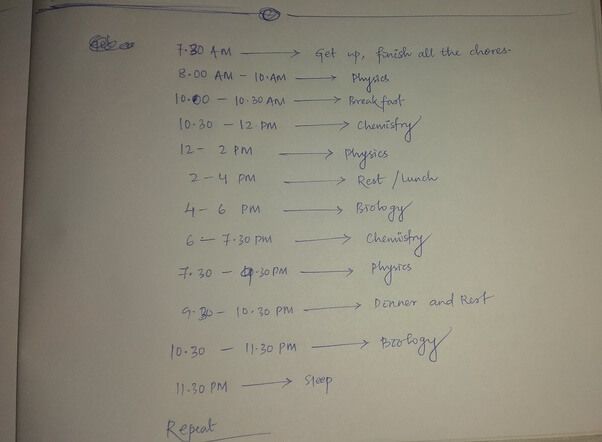 7.30 AM → Get up, finish all the chores.
8.00 AM - 10.AM → Physics
10.00 - 10.30 AM → Breakfast
10.30 - 12 PM → Chemistry
12 - 2 PM → Physics
2 - 4 PM → Rest / Lunch
4 - 6 PM → Biology
6 - 7.30 PM → Chemistry
7.30 - 9.30 PM → Physics
9.30 - 10.30 PM → Dinner and Rest
10.30 - 11.30 PM → Biology
11.30 PM → Sleep
Repeat